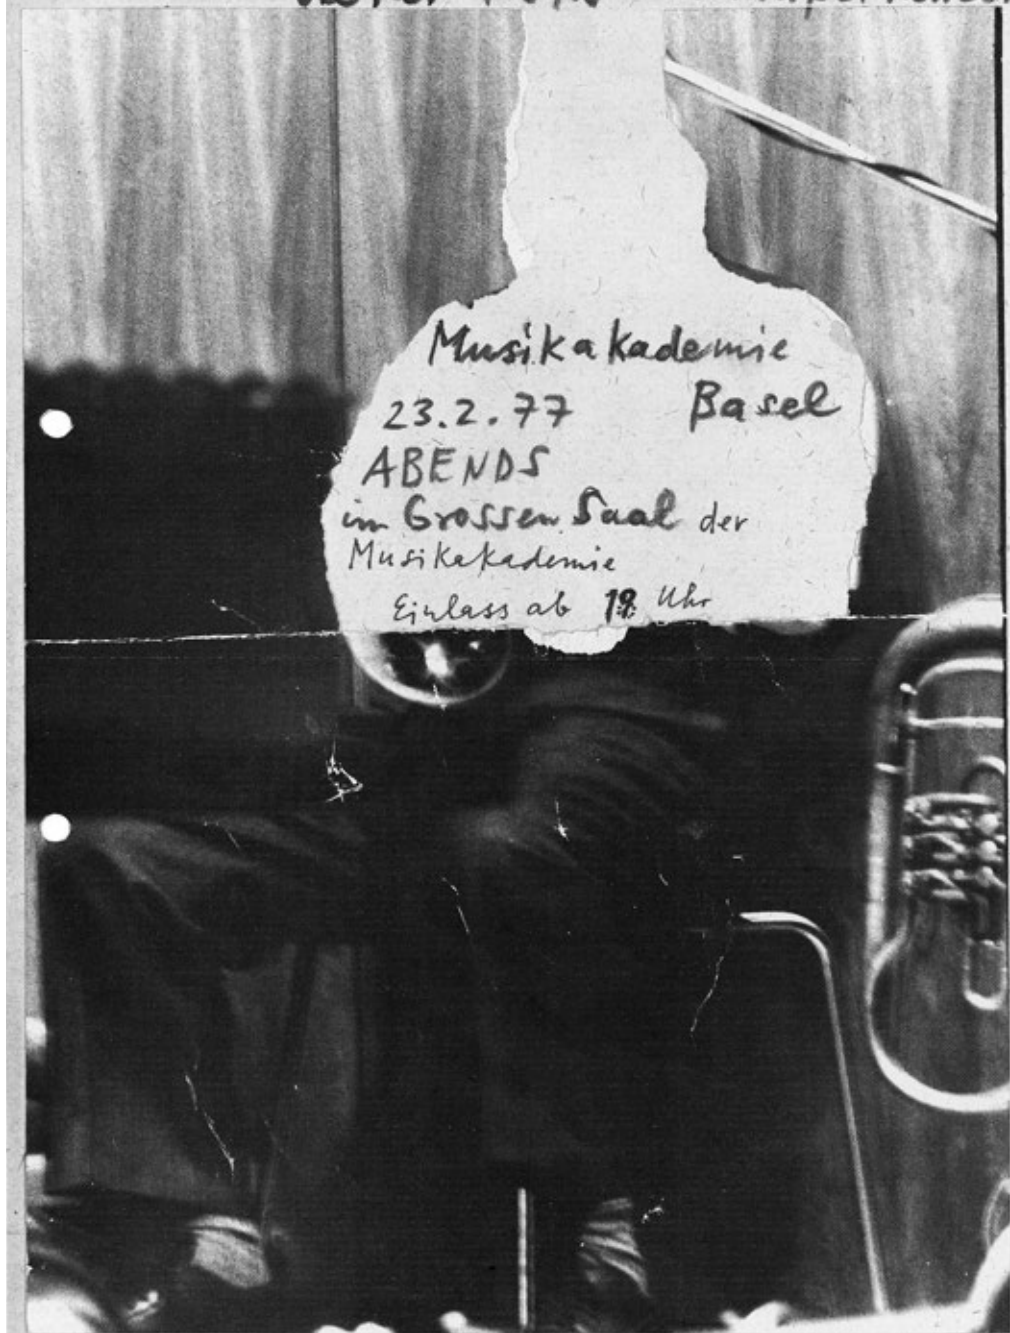 Musikakademie
23.2.77 Basel
ABENDS
im Grossen Saal der
Musikakademie
Einlass ab Uhr